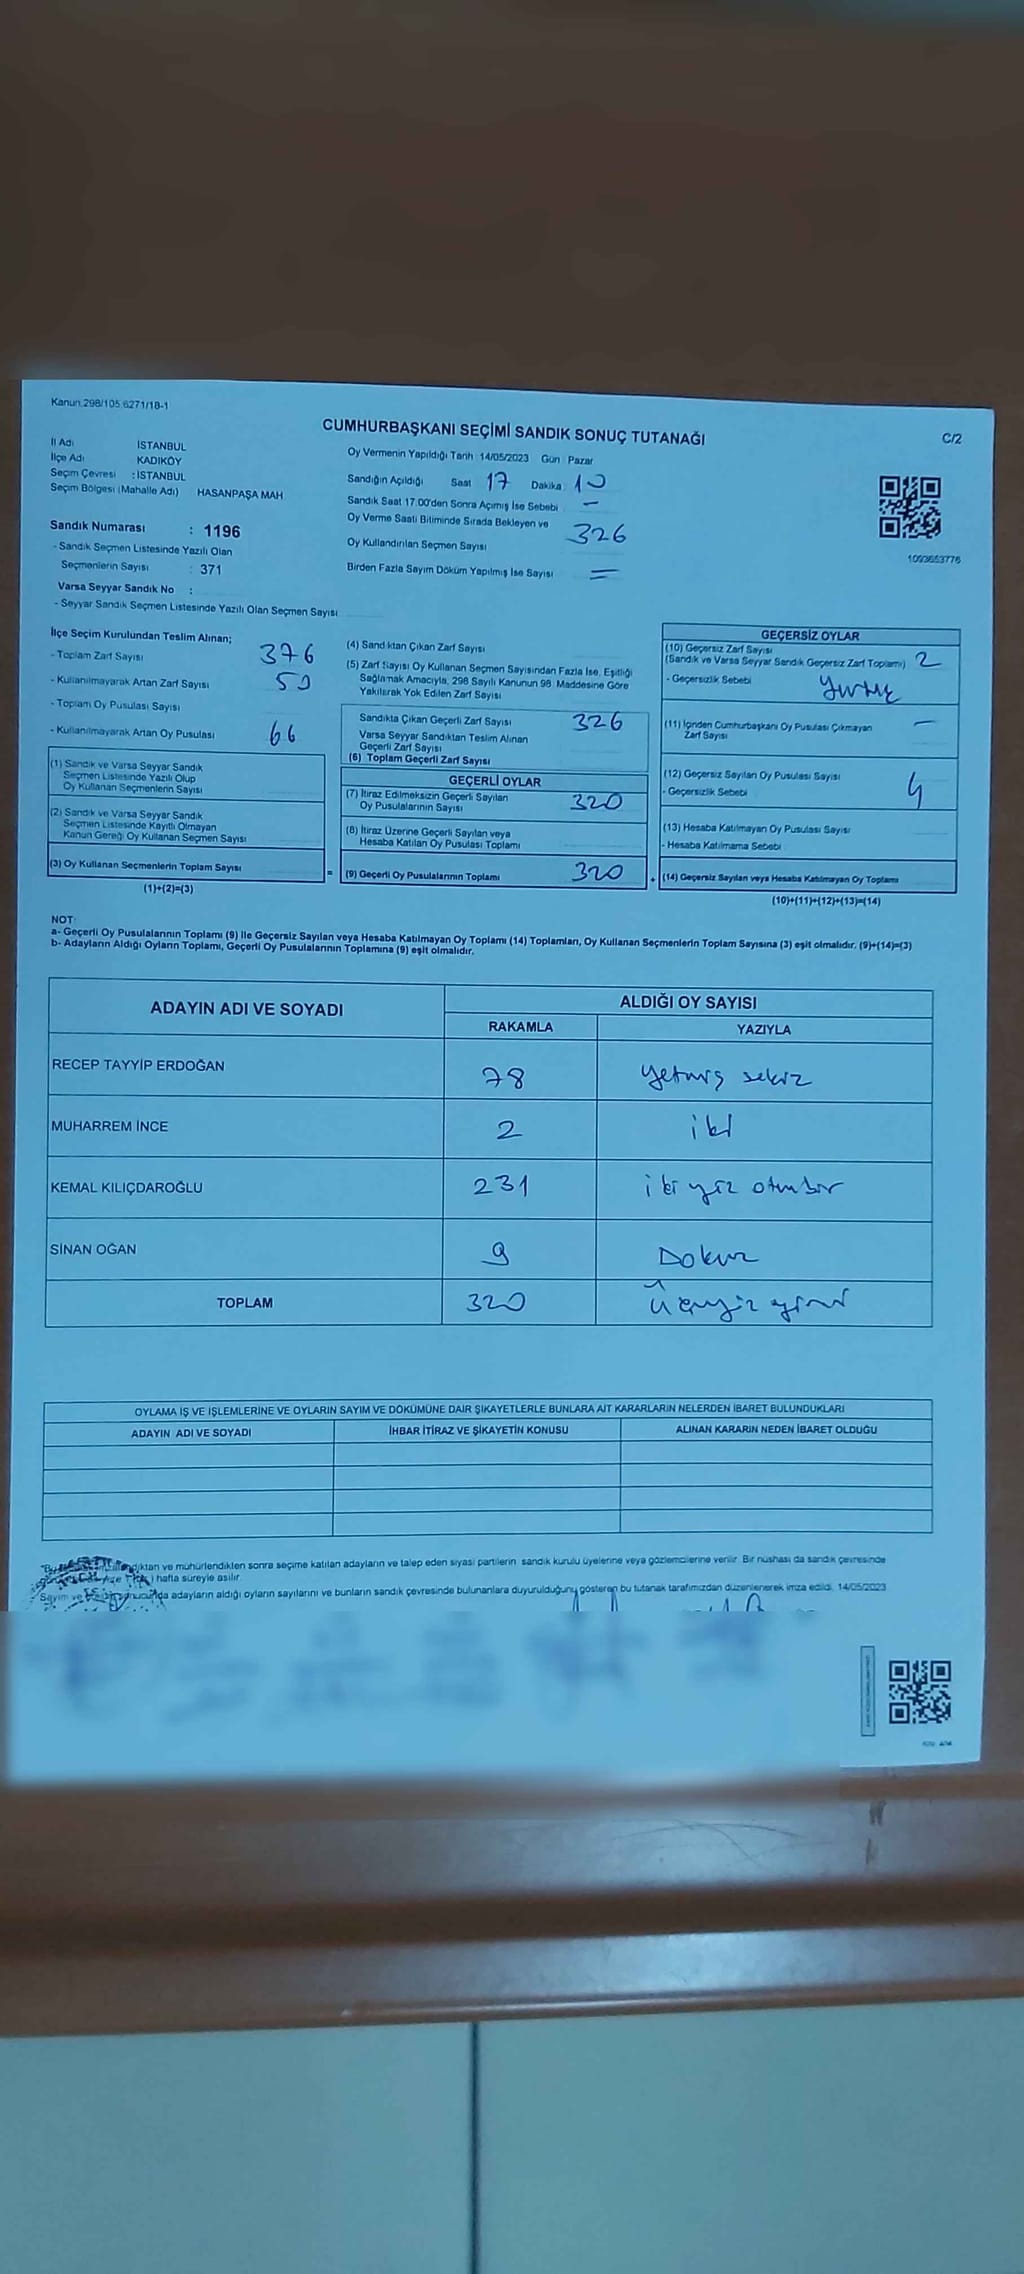 Kanun.298/105.6271/18-1
CUMHURBAŞKANI SEÇİMİ SANDIK SONUÇ TUTANAĞI
C/2
İl Adı İSTANBUL
İlçe Adı KADIKÖY
Seçim Çevresi : İSTANBUL
Seçim Bölgesi (Mahalle Adı) HASANPAŞA MAH
Sandık Numarası : 1196
- Sandık Seçmen Listesinde Yazılı Olan
Seçmenlerin Sayısı : 371
Varsa Seyyar Sandık No :
- Seyyar Sandık Seçmen Listesinde Yazılı Olan Seçmen Sayısı
Oy Vermenin Yapıldığı Tarih 14/05/2023 Gün Pazar
Sandığın Açıldığı Saat 17 Dakika 10
Sandık Saat 17.00'den Sonra Açımış İse Sebebi -
Oy Verme Saati Bitiminde Sırada Bekleyen ve
Oy Kullandırılan Seçmen Sayısı 326
Birden Fazla Sayım Döküm Yapılmış İse Sayısı =
1093653776
İlçe Seçim Kurulundan Teslim Alınan;
- Toplam Zarf Sayısı 376
- Kullanılmayarak Artan Zarf Sayısı 50
- Toplam Oy Pusulası Sayısı
- Kullanılmayarak Artan Oy Pusulası 66
(1) Sandık ve Varsa Seyyar Sandık
Seçmen Listesinde Yazılı Olup
Oy Kullanan Seçmenlerin Sayısı
(2) Sandık ve Varsa Seyyar Sandık
Seçmen Listesinde Kayıtlı Olmayan
Kanun Gereği Oy Kullanan Seçmen Sayısı
(3) Oy Kullanan Seçmenlerin Toplam Sayısı
(1)+(2)=(3)
=
(4) Sandıktan Çıkan Zarf Sayısı
(5) Zarf Sayısı Oy Kullanan Seçmen Sayısından Fazla İse, Eşitliği
Sağlamak Amacıyla, 298 Sayılı Kanunun 98. Maddesine Göre
Yakılarak Yok Edilen Zarf Sayısı
Sandıkta Çıkan Geçerli Zarf Sayısı 326
Varsa Seyyar Sandıktan Teslim Alınan
Geçerli Zarf Sayısı
(6) Toplam Geçerli Zarf Sayısı
GEÇERLİ OYLAR
(7) İtiraz Edilmeksizin Geçerli Sayılan
Oy Pusulalarının Sayısı 320
(8) İtiraz Üzerine Geçerli Sayılan veya
Hesaba Katılan Oy Pusulası Toplamı
(9) Geçerli Oy Pusulalarının Toplamı 320
+
GEÇERSİZ OYLAR
(10) Geçersiz Zarf Sayısı
(Sandık ve Varsa Seyyar Sandık Geçersiz Zarf Toplamı) 2
- Geçersizlik Sebebi
(11) İçinden Cumhurbaşkanı Oy Pusulası Çıkmayan -
Zarf Sayısı
(12) Geçersiz Sayılan Oy Pusulası Sayısı 4
- Geçersizlik Sebebi
(13) Hesaba Katılmayan Oy Pusulası Sayısı
- Hesaba Katılmama Sebebi
(14) Geçersiz Sayılan veya Hesaba Katılmayan Oy Toplamı
(10)+(11)+(12)+(13)=(14)
NOT:
a- Geçerli Oy Pusulalarının Toplamı (9) İle Geçersiz Sayılan veya Hesaba Katılmayan Oy Toplamı (14) Toplamları, Oy Kullanan Seçmenlerin Toplam Sayısına (3) eşit olmalıdır. (9)+(14)=(3)
b- Adayların Aldığı Oyların Toplamı, Geçerli Oy Pusulalarının Toplamına (9) eşit olmalıdır.
ADAYIN ADI VE SOYADI
ALDIĞI OY SAYISI
RAKAMLA YAZIYLA
RECEP TAYYİP ERDOĞAN 78 yetmiş sekiz
MUHARREM İNCE 2 iki
KEMAL KILIÇDAROĞLU 231 iki yüz otuzbir
SİNAN OĞAN 9 Dokuz
TOPLAM 320 Üçyüz yirmi
OYLAMA İŞ VE İŞLEMLERİNE VE OYLARIN SAYIM VE DÖKÜMÜNE DAİR ŞİKAYETLERLE BUNLARA AİT KARARLARIN NELERDEN İBARET BULUNDUKLARI
ADAYIN ADI VE SOYADI İHBAR İTİRAZ VE ŞİKAYETİN KONUSU ALINAN KARARIN NEDEN İBARET OLDUĞU
ve mühürlendikten sonra seçime katılan adayların ve talep eden siyasi partilerin sandık kurulu üyelerine veya gözlemcilerine verilir. Bir nüshası da sandık çevresinde
hafta süreyle asılır.
Sayım ve adayların aldığı oyların sayılarını ve bunların sandık çevresinde bulunanlara duyurulduğunu gösteren bu tutanak tarafımızdan düzenlenerek imza edildi. 14/05/2023